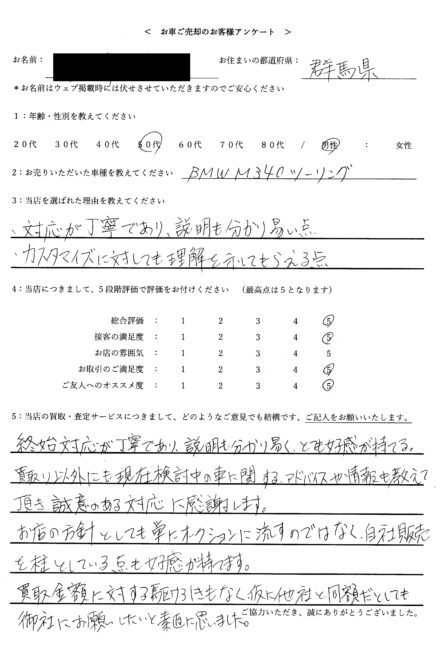 ＜　お車ご売却のお客様アンケート　＞
お名前：　お住まいの都道府県：　群馬県
＊お名前はウェブ掲載時には伏せさせていただきますのでご安心ください
１：年齢・性別を教えてください
２０代　３０代　４０代　５０代　６０代　７０代　８０代　/　男性　：　女性
２：お売りいただいた車種を教えてください　BMW M340ツーリング
３：当店を選ばれた理由を教えてください
・対応が丁寧であり、説明も分かり易い点
・カスタマイズに対しても理解を示してもらえる点
４：当店につきまして、５段階評価で評価をお付けください　（最高点は５となります）
総合評価　：　1　2　3　4　5
接客の満足度　：　1　2　3　4　5
お店の雰囲気　：　1　2　3　4　5
お取引のご満足度　：　1　2　3　4　5
ご友人へのオススメ度　：　1　2　3　4　5
５：当店の買取・査定サービスにつきまして、どのようなご意見でも結構です、ご記入をお願いいたします。
終始対応が丁寧であり、説明も分かり易く、とても好感が持てる。
買取り以外にも現在検討中の車に関する、アドバイスや情報も教えて
頂き誠意のある対応に感謝します。
お店の方針としても単にオークションに流すのではなく、自社販売
を柱としている点も好感が持てます。
買取金額に対する駆け引きもなく、仮に他社と同額だとしても
御社にお願いしたいと素直に思いました。
ご協力いただき、誠にありがとうございました。